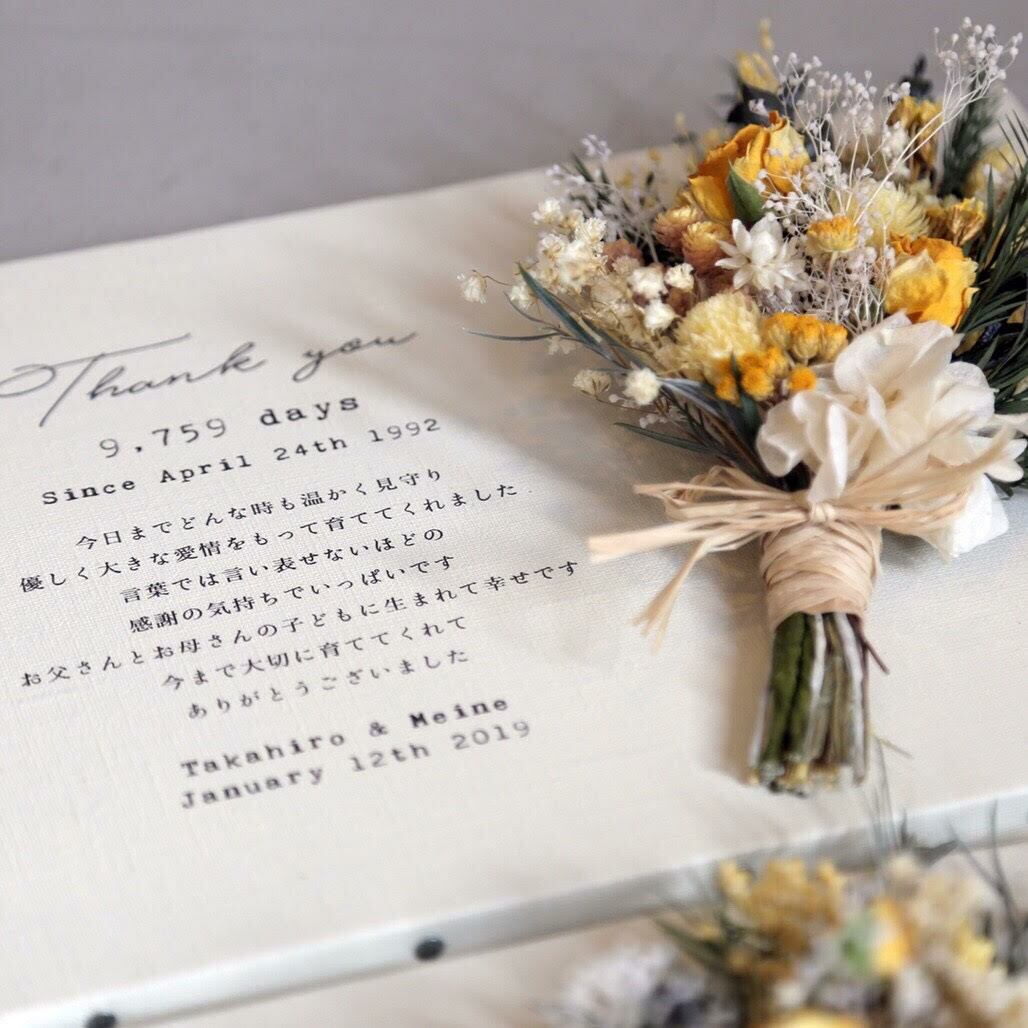 Thank you
9,759 days
Since April 24th 1992
今日までどんな時も温かく見守り
優しく大きな愛情をもって育ててくれました
言葉では言い表せないほどの
感謝の気持ちでいっぱいです
お父さんとお母さんの子どもに生まれて幸せです
今まで大切に育ててくれて
ありがとうございました
Takahiro & Meine
January 12th 2019